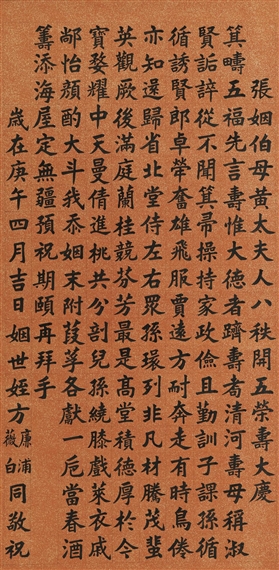 張姻伯母黃太夫人八秩開五榮壽大慶
箕疇五福先言壽惟大德者躋壽者清河壽母稱淑
賢詬誶從不聞箕帚操持家政儉且勤訓子課孫循
循誘賢郎卓犖奮雄飛服賈遠方耐奔走有時鳥倦
亦知還歸省北堂侍左右眾孫環列非凡材騰茂蜚
英觀厥後滿庭蘭桂競芬芳最是高堂積德厚於今
寶婺耀中天曼倩進桃共分剖兒孫繞膝戲萊衣戚
鄰怡顏酌大斗我忝姻末附葭莩各獻一卮當春酒
籌添海屋定無疆預祝期頤再拜手
歲在庚午四月吉日姻世姪方廉浦薇白同敬祝